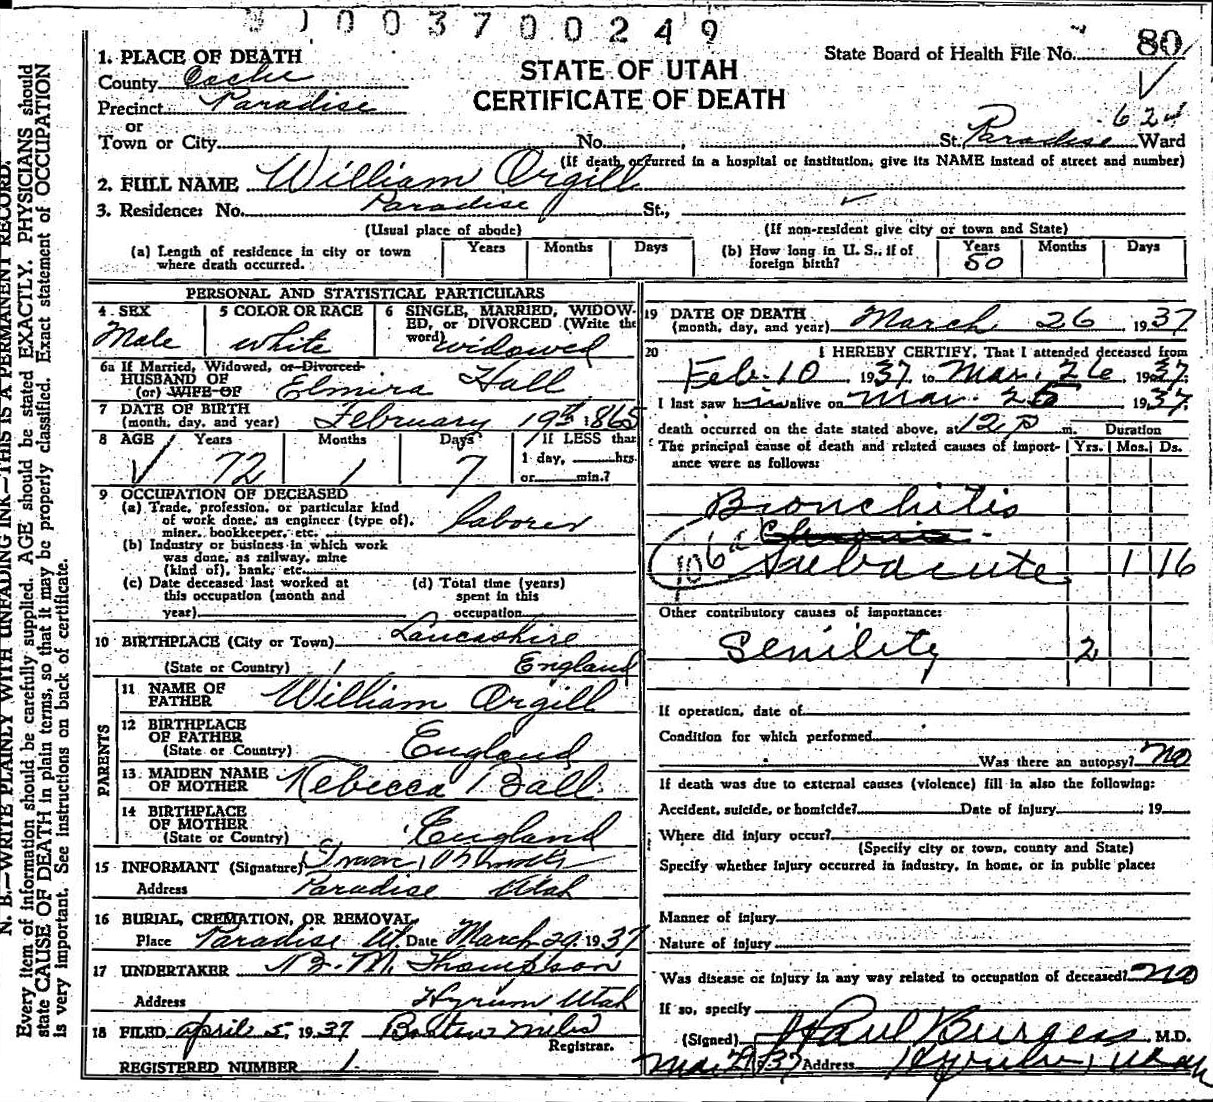 003700249
80
State Board of Health File No.
STATE OF UTAH
CERTIFICATE OF DEATH
1. PLACE OF DEATH
County Cache
Precinct Paradise
or
Town or City No. St. Paradise Ward 624
(If death occurred in a hospital or institution, give its NAME instead of street and number)
2. FULL NAME William Orgill
3. Residence: No. Paradise St.,
(Usual place of abode) (If non-resident give city or town and State)
(a) Length of residence in city or town where death occurred. Years Months Days
(b) How long in U. S., if of foreign birth? Years 50 Months Days
PERSONAL AND STATISTICAL PARTICULARS
4 SEX Male
5 COLOR OR RACE white
6 SINGLE, MARRIED, WIDOWED, or DIVORCED (Write the word) widowed
6a If Married, Widowed, or Divorced
HUSBAND OF
(or) WIFE OF Elmira Hall
7 DATE OF BIRTH
(month, day, and year) February 19th 1865
8 AGE Years 72 Months 1 Days 7 If LESS than 1 day, hrs. or min.?
9 OCCUPATION OF DECEASED
(a) Trade, profession, or particular kind of work done, as engineer (type of), miner, bookkeeper, etc. laborer
(b) Industry or business in which work was done, as railway, mine (kind of), bank, etc.
(c) Date deceased last worked at this occupation (month and year)
(d) Total time (years) spent in this occupation
10 BIRTHPLACE (City or Town) Lancashire
(State or Country) England
PARENTS
11 NAME OF FATHER William Orgill
12 BIRTHPLACE OF FATHER
(State or Country) England
13 MAIDEN NAME OF MOTHER Rebecca Ball
14 BIRTHPLACE OF MOTHER
(State or Country) England
15 INFORMANT (Signature)
Address Paradise Utah
16 BURIAL, CREMATION, OR REMOVAL,
Place Paradise Ut. Date March 29. 1937
17 UNDERTAKER M. Thompson
Address Hyrum Utah
18 FILED April 5, 1937 Miles
Registrar.
REGISTERED NUMBER 1
19 DATE OF DEATH
(month, day, and year) March 26 1937
20 I HEREBY CERTIFY, That I attended deceased from
Feb. 10 1937, to Mar. 26, 1937.
I last saw him alive on Mar. 26 1937.
death occurred on the date stated above, at 12 P m. Duration
The principal cause of death and related causes of importance were as follows: Yrs. Mos. Ds.
Bronchitis
106a Subacute 1 16
Other contributory causes of importance:
Senility 2
If operation, date of
Condition for which performed
Was there an autopsy? no
If death was due to external causes (violence) fill in also the following:
Accident, suicide, or homicide? Date of injury ; 19
Where did injury occur?
(Specify city or town, county and State)
Specify whether injury occurred in industry, in home, or in public place:
Manner of injury
Nature of injury
Was disease or injury in any way related to occupation of deceased? no
If so, specify
(Signed) Paul Burgess M.D.
Address Hyrum, Utah
N. B.—WRITE PLAINLY WITH UNFADING INK—THIS IS A PERMANENT RECORD.
Every item of information should be carefully supplied. AGE should be stated EXACTLY. PHYSICIANS should
state CAUSE OF DEATH in plain terms, so that it may be properly classified. Exact statement of OCCUPATION
is very important. See instructions on back of certificate.